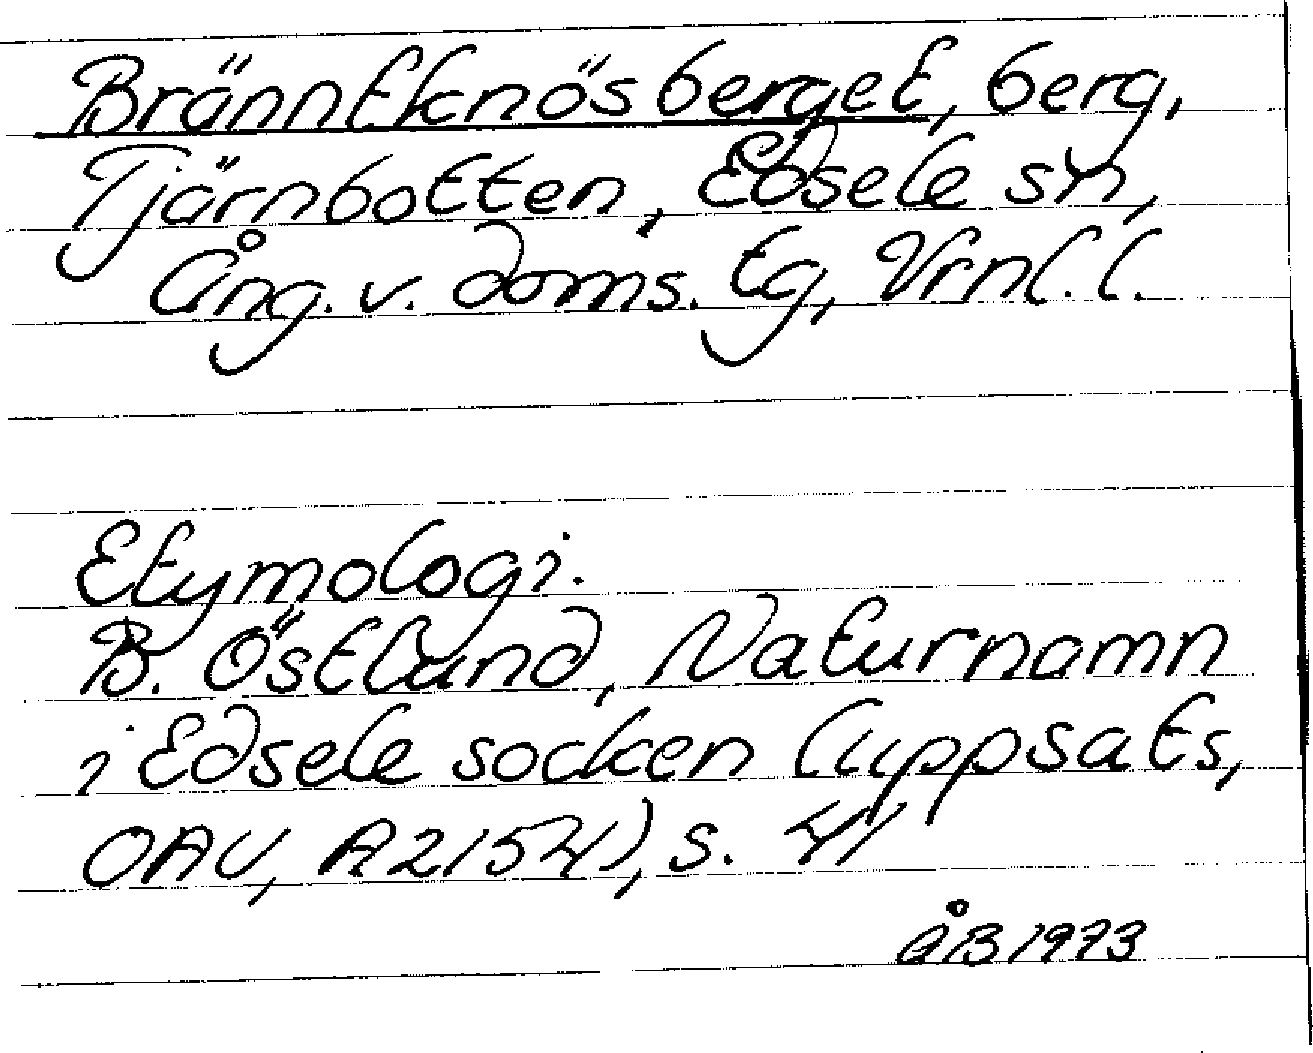 Bränntknösberget, berg,
Tjärnbotten, Edsele sn,
Ång. v. doms. tg, Vrnl. l.
Etymologi.
B. Östlund, Naturnamn
i Edsele socken (uppsats,
OAU, A2154), s. 41
ÅB 1973